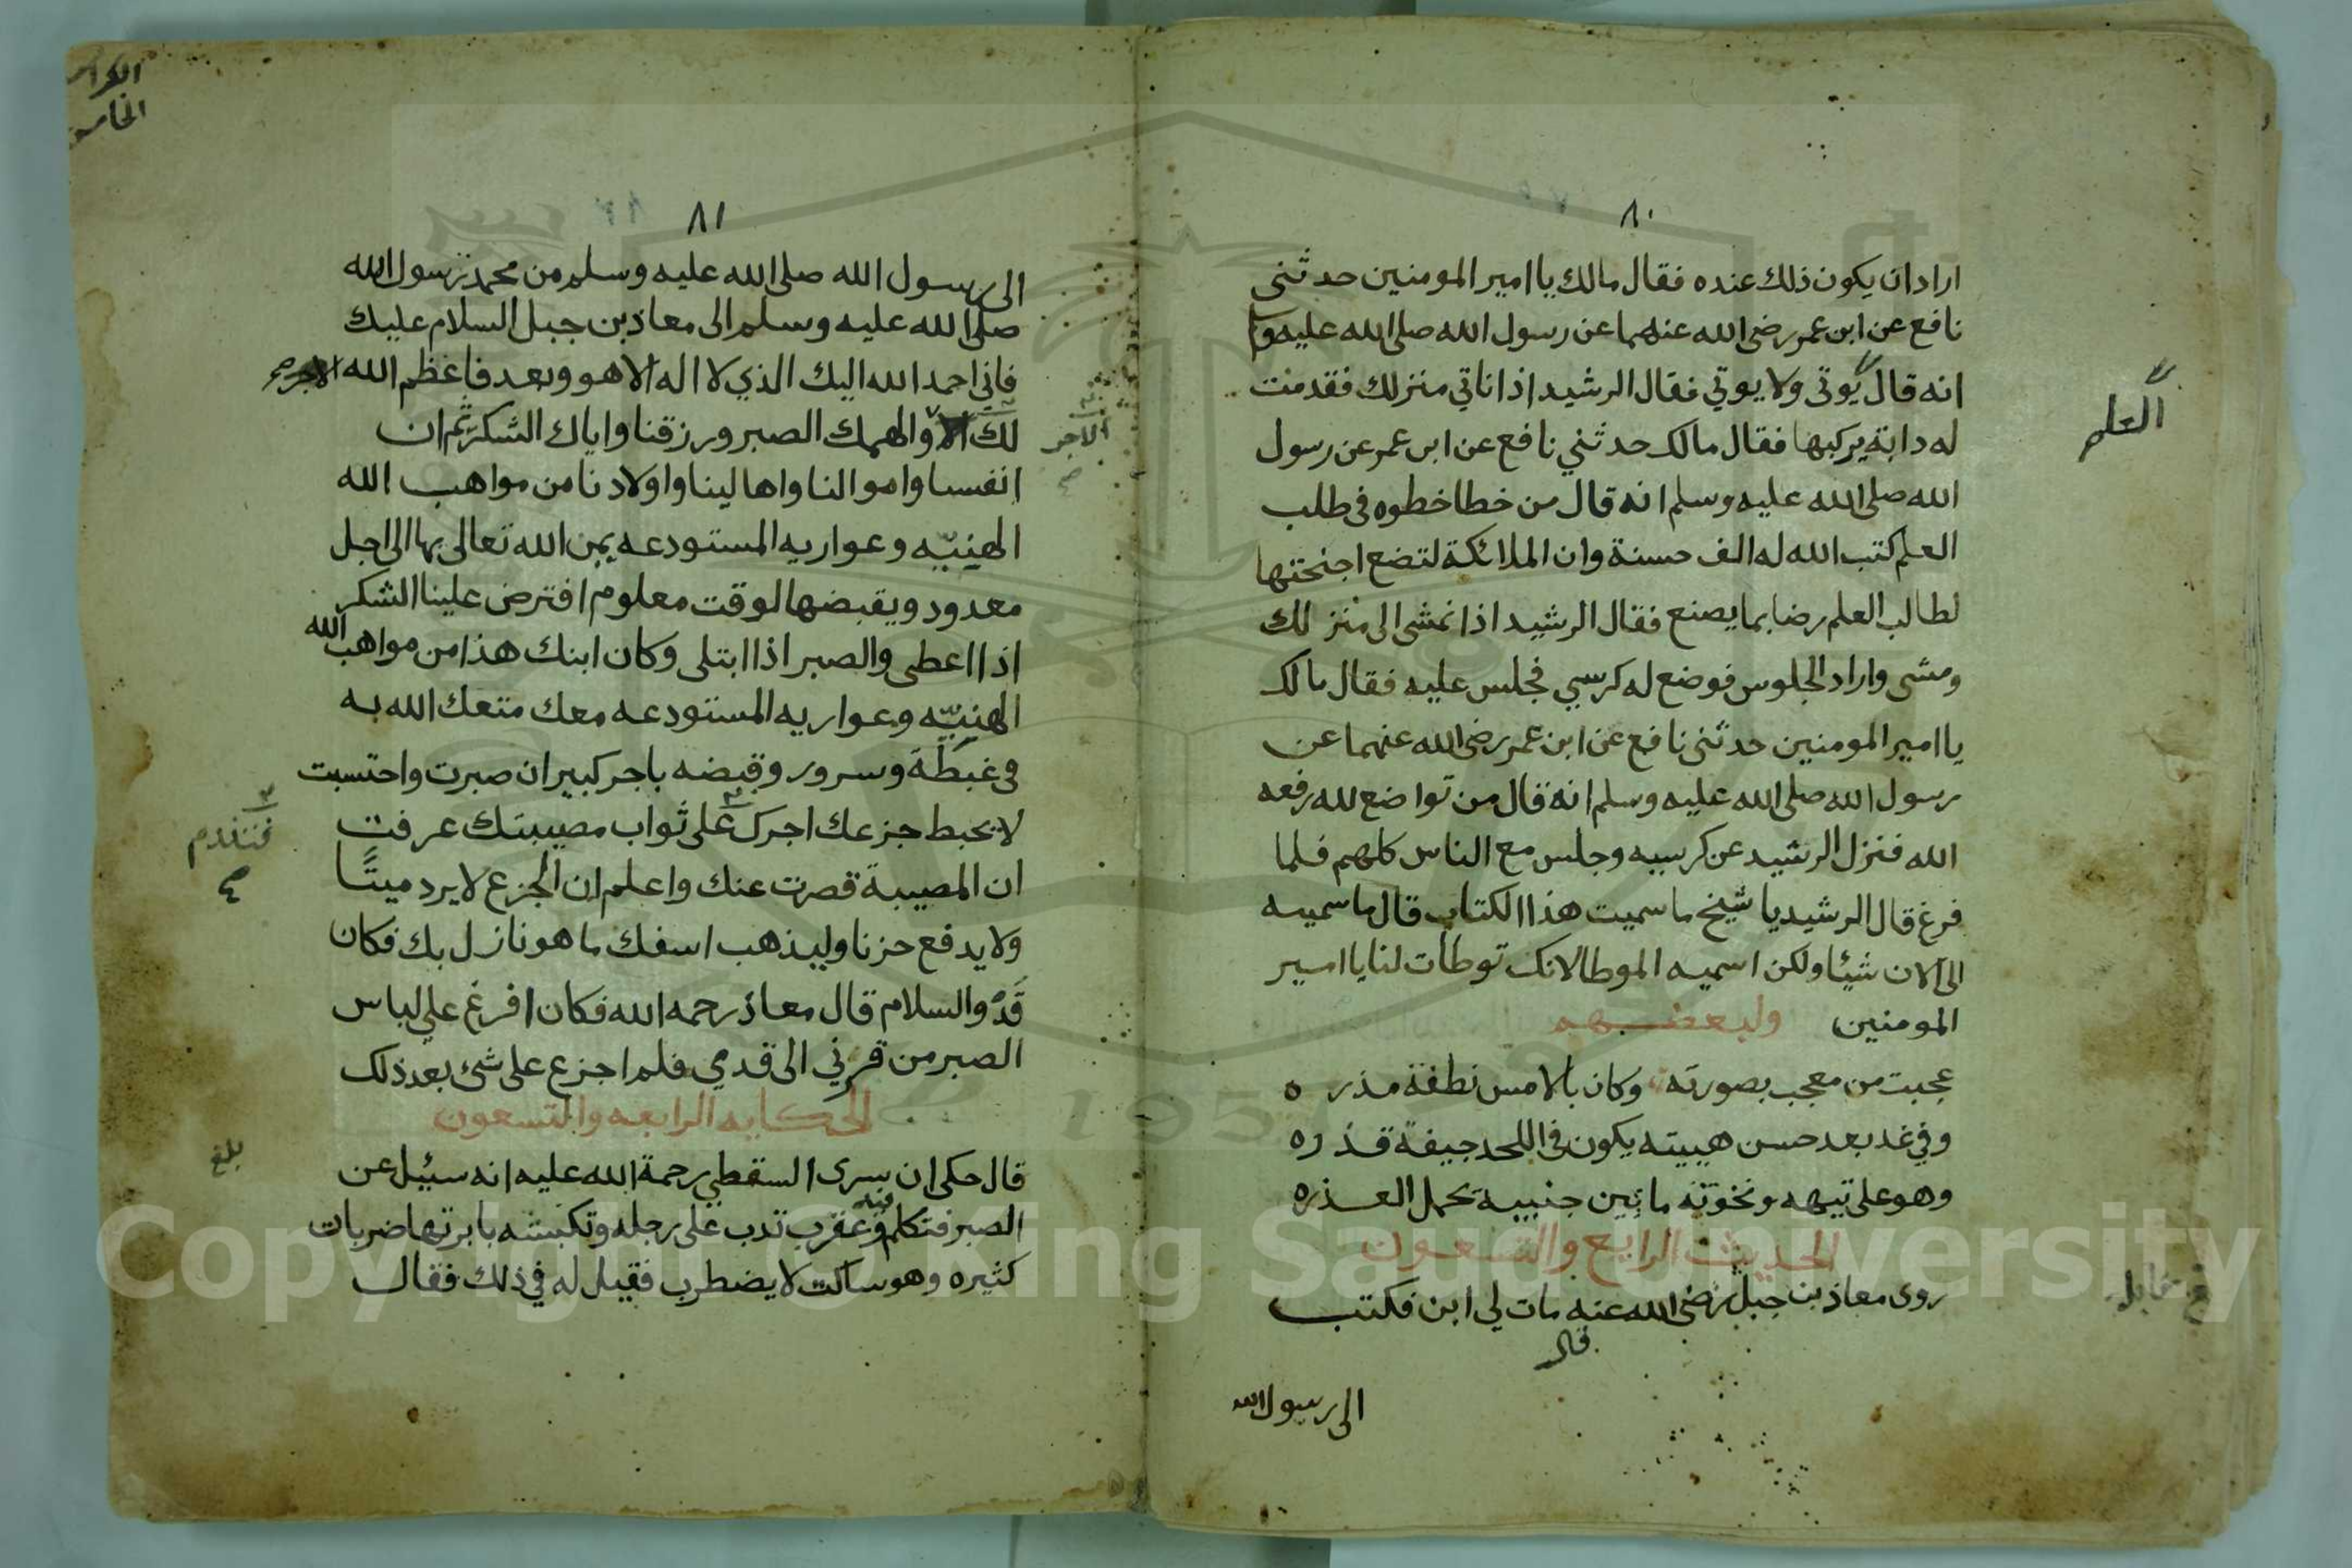 ٨٠
اراد ان يكون ذلك عنده فقال مالك يا امير المومنين حدثني
نافع عن ابن عمر رضي الله عنهما عن رسول الله صلى الله عليه وسلم
انه قال يوتى ولا يوتي فقال الرشيد اذا ناتي منزلك فقدمت
العلم
له دابة يركبها فقال مالك حدثني نافع عن ابن عمر عن رسول
الله صلى الله عليه وسلم انه قال من خطا خطوه في طلب
العلم كتب الله له الف حسنة وان الملائكة لتضع اجنحتها
لطالب العلم رضا بما يصنع فقال الرشيد اذا نمشى الى منزلك
ومشى واراد الجلوس فوضع له كرسي فجلس عليه فقال مالك
يا امير المومنين حدثنى نافع عن ابن عمر رضي الله عنهما عن
رسول الله صلى الله عليه وسلم انه قال من تواضع لله رفعه
الله فنزل الرشيد عن كرسيه وجلس مع الناس كلهم فلما
فرغ قال الرشيد يا شيخ ما سميت هذا الكتاب قال ما سميه
الى الان شيئا ولكن اسميه الموطا لانك توطات لنا يا امير
المومنين ولبعضهم
عجبت من معجب بصورته وكان بالامس نطفة مذره
وفي غد بعد حسن هيبيته يكون في اللحد جيفة قذره
وهو على تيهه ونخوته ما بين جنبيه يحمل العذره
الحديث الرابع والتسعون
روى معاذ بن جبل رضي الله عنه مات لي ابن فكتب
قال
الى رسول الله
الكراس
الخامس
٨١
الى رسول الله صلى الله عليه وسلم من محمد رسول الله
صلى الله عليه وسلم الى معاذ بن جبل السلام عليك
فاني احمد الله اليك الذي لا اله الا هو وبعد فاعظم الله
لك والهمك الصبر ورزقنا واياك الشكر ثم ان
الاجر
انفسنا واموالنا واهالينا واولادنا من مواهب الله
الهنييه وعواريه المستودعه يمن الله تعالى بها الى اجل
معدود ويقبضها لوقت معلوم افترض علينا الشكر
اذا اعطى والصبر اذا ابتلى وكان ابنك هذا من مواهب الله
الهنييه وعواريه المستودعه معك متعك الله به
في غبطة وسرور وقبضه باجر كبير ان صبرت واحتسبت
لا يحبط جزعك اجرك على ثواب مصيبتك عرفت
فتندم
ان المصيبة قصرت عنك واعلم ان الجزع لا يرد ميتًا
ولا يدفع حزنا وليذهب اسفك ما هو نازل بك فكان
قد والسلام قال معاذ رحمه الله فكان افرغ علي لباس
الصبر من قرني الى قدمي فلم اجزع على شئ بعد ذلك
الحكايه الرابعه والتسعون
بلغ
قال حكى ان سرى السقطي رحمة الله عليه انه سيئل عن
الصبر فتكلم فيه وعقرب تدب على رجله وتكبشه بابرتها ضربات
كثيره وهو ساكت لا يضطرب فقيل له في ذلك فقال
Copyright © King Saud University
1957